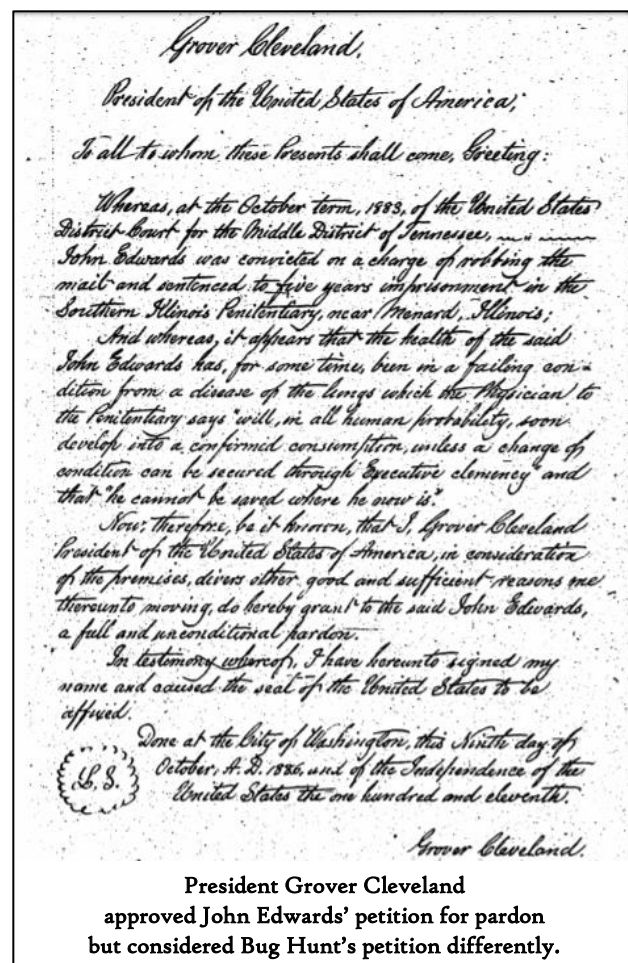 Grover Cleveland.
President of the United States of America;
To all to whom these Presents shall come, Greeting:
Whereas, at the October term, 1883, of the United States
District Court for the Middle District of Tennessee,
John Edwards was convicted on a charge of robbing the
mail and sentenced to five years imprisonment in the
Southern Illinois Penitentiary, near Menard, Illinois;
And whereas, it appears that the health of the said
John Edwards has, for some time, been in a failing con-
dition from a disease of the lungs which the Physician to
the Penitentiary says "will, in all human probability, soon
develop into a confirmid consumption, unless a change of
condition can be secured through Executive clemency" and
that "he cannot be saved where he now is".
Now, therefore, be it known, that I, Grover Cleveland
President of the United States of America, in consideration
of the premises, divers other good and sufficient reasons me
thereunto moving, do hereby grant to the said John Edwards,
a full and unconditional pardon.
In testimony whereof, I have hereunto signed my
name and caused the seal of the United States to be
affixed.
Done at the City of Washington, this Ninth day of
October, A.D. 1886, and of the Independence of the
United States the one hundred and eleventh.
L. S.
Grover Cleveland.
President Grover Cleveland
approved John Edwards' petition for pardon
but considered Bug Hunt's petition differently.